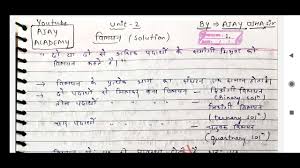 Youtube
AJAY
ACADEMY
Unit-2
By → AJAY
विलयन (Solution)
" दो या दो से अधिक पदार्थों के समांगी मिश्रण को
विलयन कहते हैं। "
→ विलयन के प्रत्येक भाग का संघटन एक समान होता है।
→ दो पदार्थों से मिलकर बना विलयन - द्विअंगी विलयन
(Binary solⁿ)
तीन पदार्थों - त्रिअंगी विलयन
(ternary solⁿ)
चार पदार्थों - चतुष्क विलयन
(quarternary solⁿ)